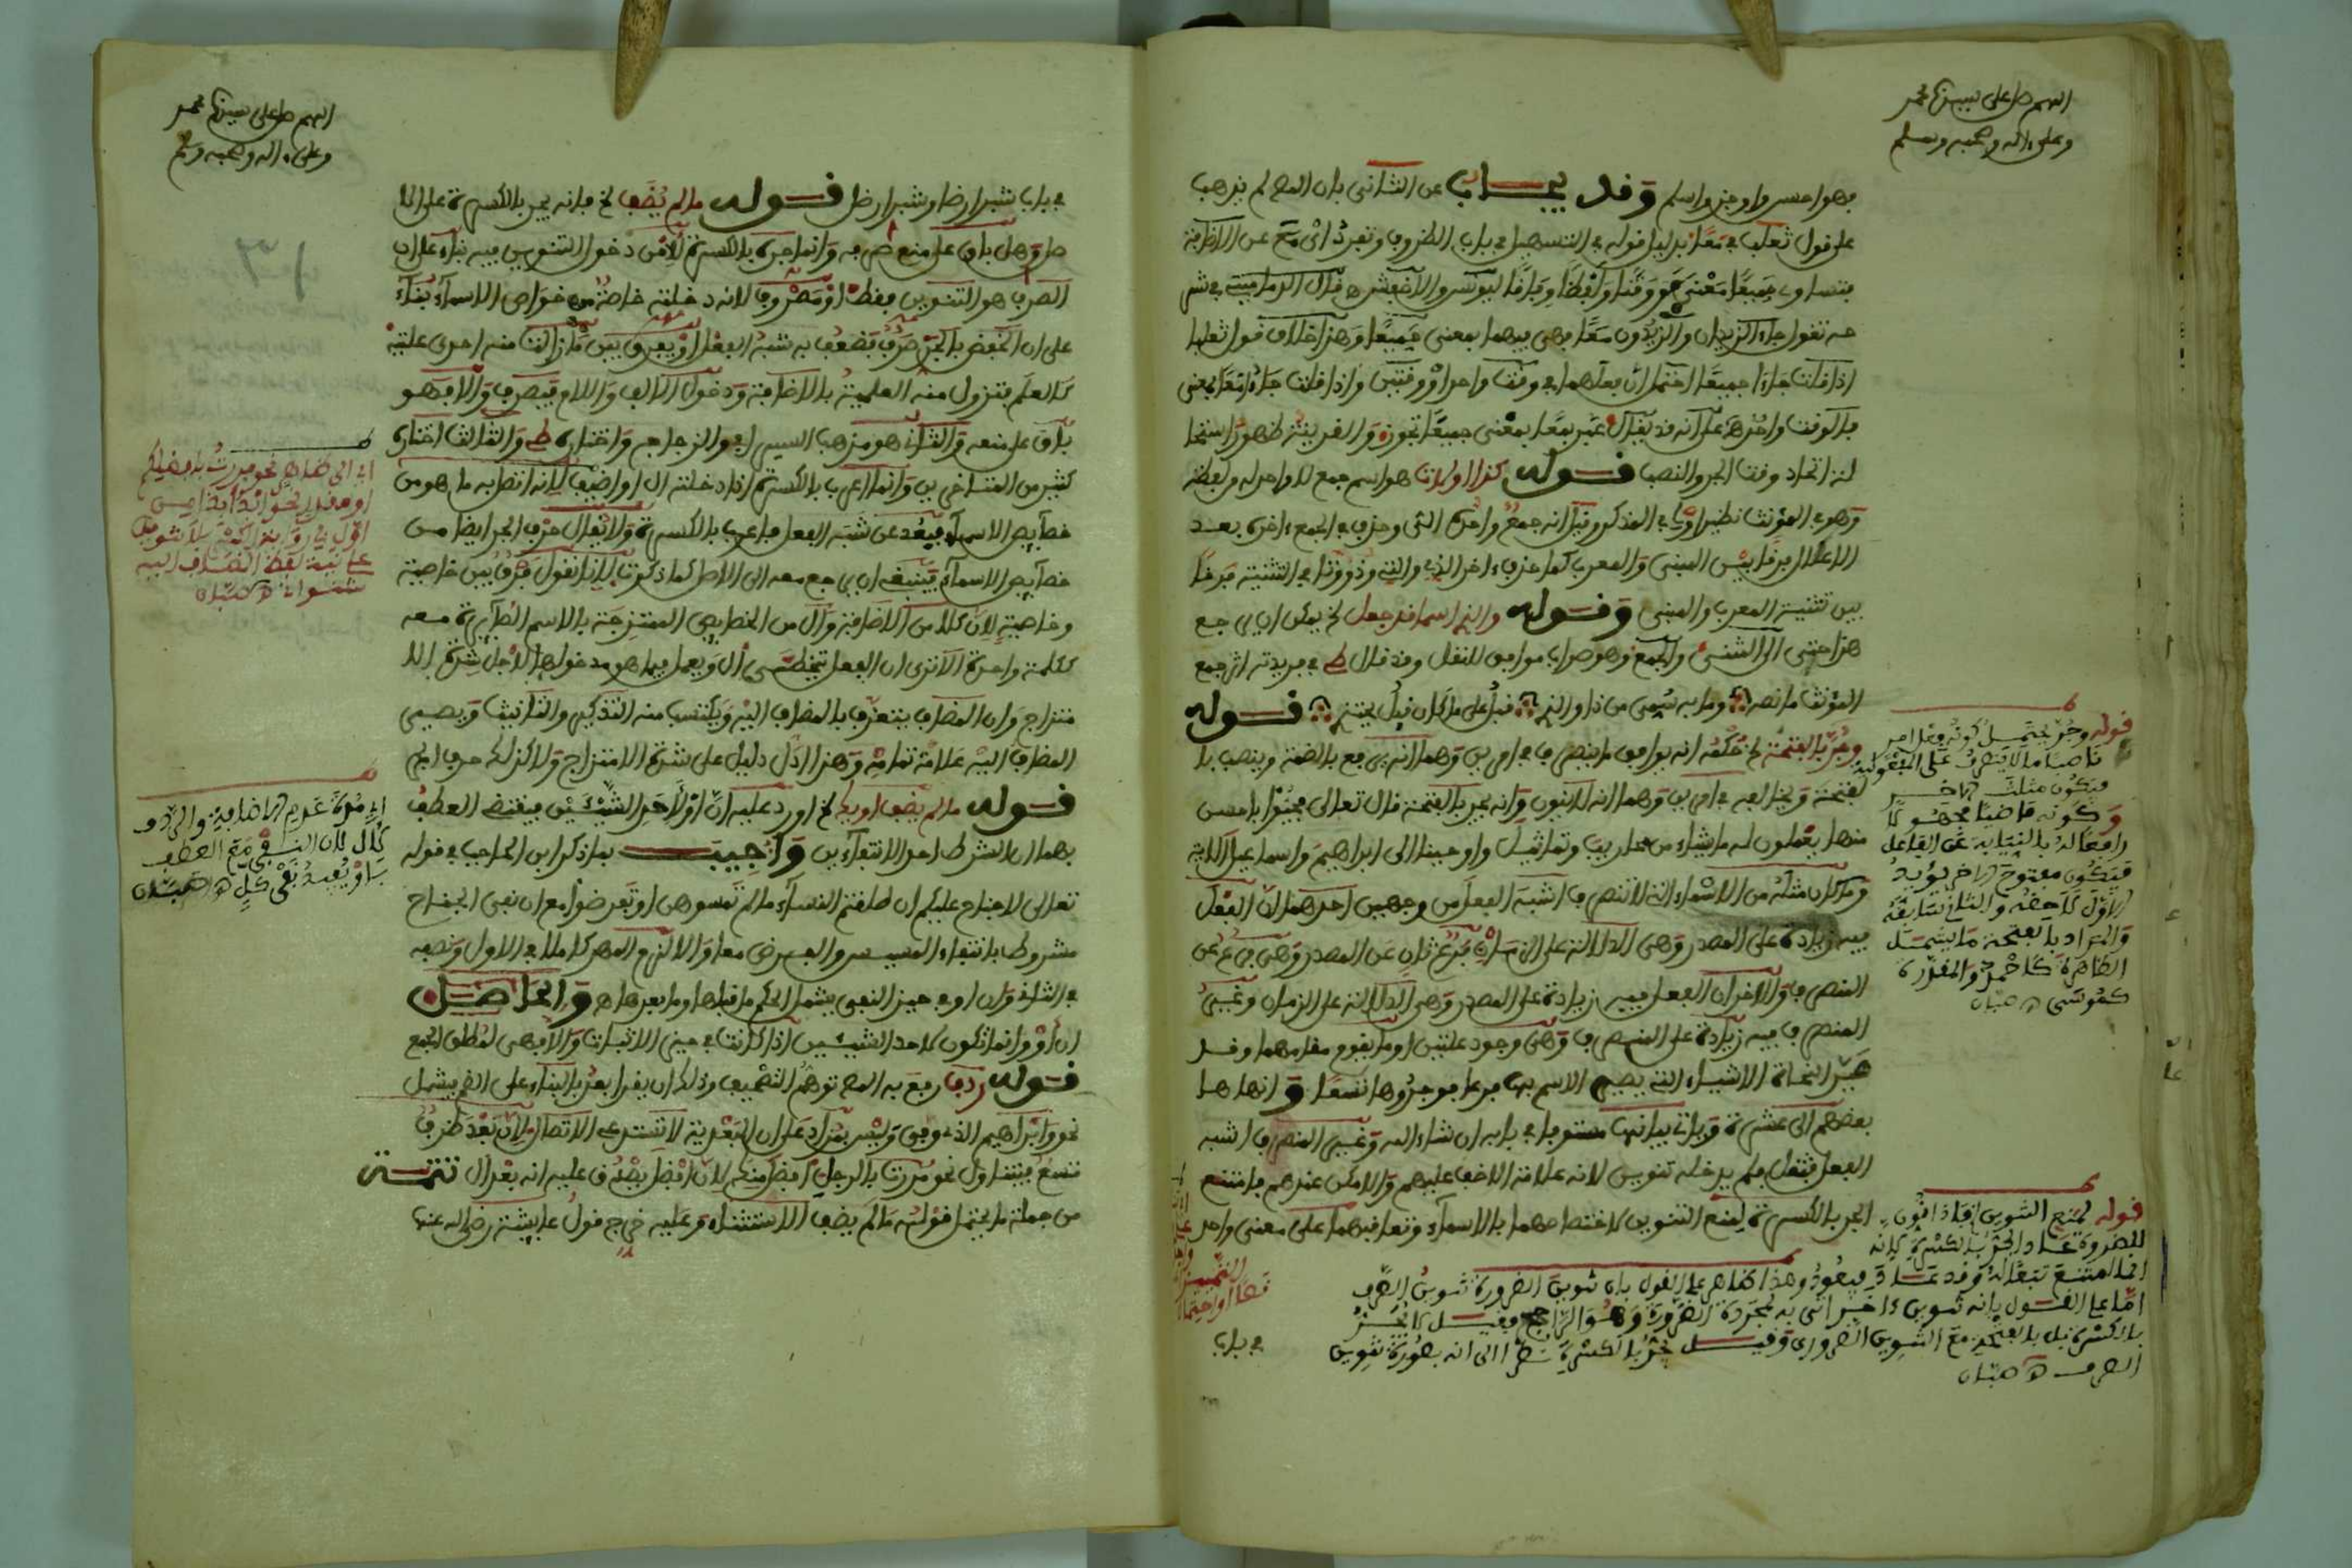 اللهم صل على سيدنا محمد
وعلى ءاله وصحبه وسلم
فهو احسن واوجز واسلم وقد يجاب عن الثاني بان المص لم يذهب
على قول ثعلب في معا بدليل قوله في التسهيل في باب الظروف وتفرد اي مع عن الاضافة
فتساوى جميعا معنى
جاء الزيدان والزيدون معا فهي فيهما بمعنى جميعا وهذا خلاف قول ثعلب
اذا قلت جاءا جميعا احتمل ان فعلهما في وقت واحد او وقتين واذا قلت جاءا معا فمعنى
فالوقت واحد على انه قد يقال عبر بمعا بمعنى جميعا تجوزا والقرينة ظهور استحا
لة اتحاد وقت الجر والنصب قوله كذا اولات هو اسم جمع لا واحد له من لفظه
وهو في المؤنث نظير اولي في المذكر وقيل انه جمع
الاعلال فرقا بين المبني والمعرب كما حذف ءاخر الذي والتي في التثنية فرقا
بين تثنية المعرب والمبني وقوله والذي اسما قد جعل الخ يمكن ان يرجع
هذا حتى الى المثنى والجمع وهو صواب موافق للنقل وقد قال ط في فريدته اثر جمع
المؤنث ما نصه وما به سمي من ذا والذي قبل على ما كان قبل يحتذي قوله
وجر بالفتحة الخ حكمه انه يوافق ما ينصرف في امرين وهما انه يرفع بالضمة وينصب با
لفتحة ويخالفه في امرين وهما انه لا ينون وانه يجر بالفتحة قال تعالى فحيوا باحسن
منها يعملون له ما يشاء من محاريب وتماثيل واوحينا الى ابراهيم واسماعيل الاية
وما كان مثله من الاسماء التي لا تنصرف اشبه الفعل من وجهين احدهما ان الفعل
فيه زيادة على المصدر وهي الدلالة على الزمان فهو فرع عن المصدر وهي فرع عن
المنصرف والاخر ان الفعل فيه زيادة على المصدر وهي الدلالة على الزمان وغير
المنصرف فيه زيادة على المنصرف وهي وجود علتين او ما يقوم مقامهما وقد
النحاة الاشياء التي يصير الاسم بها فرعا فوجدوها تسعا وانهاها
بعضهم الى عشرة وياتي بيانها مستوفى في بابه ان شاء الله وغير المنصرف اشبه
الفعل فثقل فلم يدخله تنوين لانه علامة الاخف عليهم والامكن عندهم فامتنع
الجر بالكسرة لمنع التنوين لاختصاصهما بالاسماء وتعاقبهما على معنى واحد
في باب
قوله وجر يحتمل كونه فعل امر
ناصبا ما لا ينصرف على المفعولية
فيكون مثلث الاخر
وكونه ماضيا مجهولا
رافعا له بالنيابة عن الفاعل
فيكون مفتوح الاخر يؤيد
الاول لاحقه والثاني سابقه
والمراد بالفتحة ما يشمل
الظاهرة كاحمد والمقدرة
كموسى اه صبان
قوله لمنع التنوين اي فاذا نون
للضرورة عاد الجر بالكسرة لانه
انما امتنع تبعا له وقد عاد فيعود وهذا ظاهر على القول بان تنوين الضرورة تنوين الصرف
اما على القول بانه تنوين ءاخر اتي به لمجرد الضرورة وهو الراجح فقيل لا يجر
بالكسرة بل بالفتحة مع التنوين الضروري وقيل يجر بالكسرة نظرا الى انه بصورة تنوين
الصرف اه صبان
اللهم صل على سيدنا محمد
وعلى ءاله وصحبه وسلم
قوله ما لم يضف الخ فانه يجر بالكسرة على الا
صل وهل باق على منع صرفه وانما جر بالكسرة لامن دخول التنوين فيه بناء على ان
الصرف هو التنوين فقط او مصروف لانه دخلته خاصة من خواص الاسماء بناء
على ان الخفض بالجر صرف فضعف به شبه الفعل او يفرق بين ما زالت منه احدى علتيه
كالعلم فتزول منه العلمية بالاضافة ودخول الالف واللام فيصرف والا فهو
باق على منعه والثاني هو مذهب السيرافي والزجاج واختاره ط والثالث اختاره
كثير من المتاخرين وانما اعرب بالكسرة اذا دخلته ال او اضيف لانه اتصل به ما هو من
خصائص الاسماء فبعد عن شبه الفعل فاعرب بالكسرة ولا يقال حرف الجر ايضا من
خصائص الاسماء فينبغي ان يرجع معه الى الاصل كما ذكرت لانا نقول فرق بين خاصية
وخاصية لان كلا من الاضافة وال من الخصائص الممتزجة بالاسم الصائرة معه
ككلمة واحدة الا ترى ان الفعل يتخطى ال ويعمل فيما هو مدخولها لاجل شدة الا
متزاج وان المضاف يتعرف بالمضاف اليه ويكتسب منه التذكير والتانيث ويصير
المضاف اليه علامة تمامه وهذا ادل دليل على شدة الامتزاج ولا كذلك حرف الجر
قوله ما لم يضف او يك الخ اورد عليه ان او لاحد الشيئين فيقتضي العطف
بهما ان الشرط احد الانتفاءين واجيب بما ذكر ابن الحاجب في قوله
تعالى لا جناح عليكم ان طلقتم النساء ما لم تمسوهن او تفرضوا مع ان نفي الجناح
مشروط بانتفاء المسيس والفرض معا والا لزم المهر كاملا في الاول ونصفه
في الثاني وان او في حيز النفي يشمل الحكم ما قبلها وما بعدها والحاصل
ان او وانما تكون لاحد الشيئين اذا كانت في حيز الاثبات والا فهي لمطلق الجمع
قوله ردف رفع به المص توهم التضعيف وذلك ان يقرا بعد بالبناء على الضم يشمل
نحو وابراهيم الذي وفى وليس بمراد على ان البعدية لا تستدعي الاتصال لان بعد ظرف
متسع فيتناول نحو مررت بالرجل افضل منكم لان افضل يصدق عليه انه بعد ال تتمة
من جملة ما يحتمل قوله ما لم يضف الاستثناء وعليه خرج قول عايشة رضي الله عنها
اي الى ظاهر نحو مررت بافضلكم
او مقدر نحو ابدأ بذا من
اول في رواية الكسر بلا تنوين
على نية لفظ المضاف اليه
شنواني اه صبان
اي مدة عدم الاضافة والردف
لال لان النفي مع العطف
باو يفيد نفي كل اه صبان